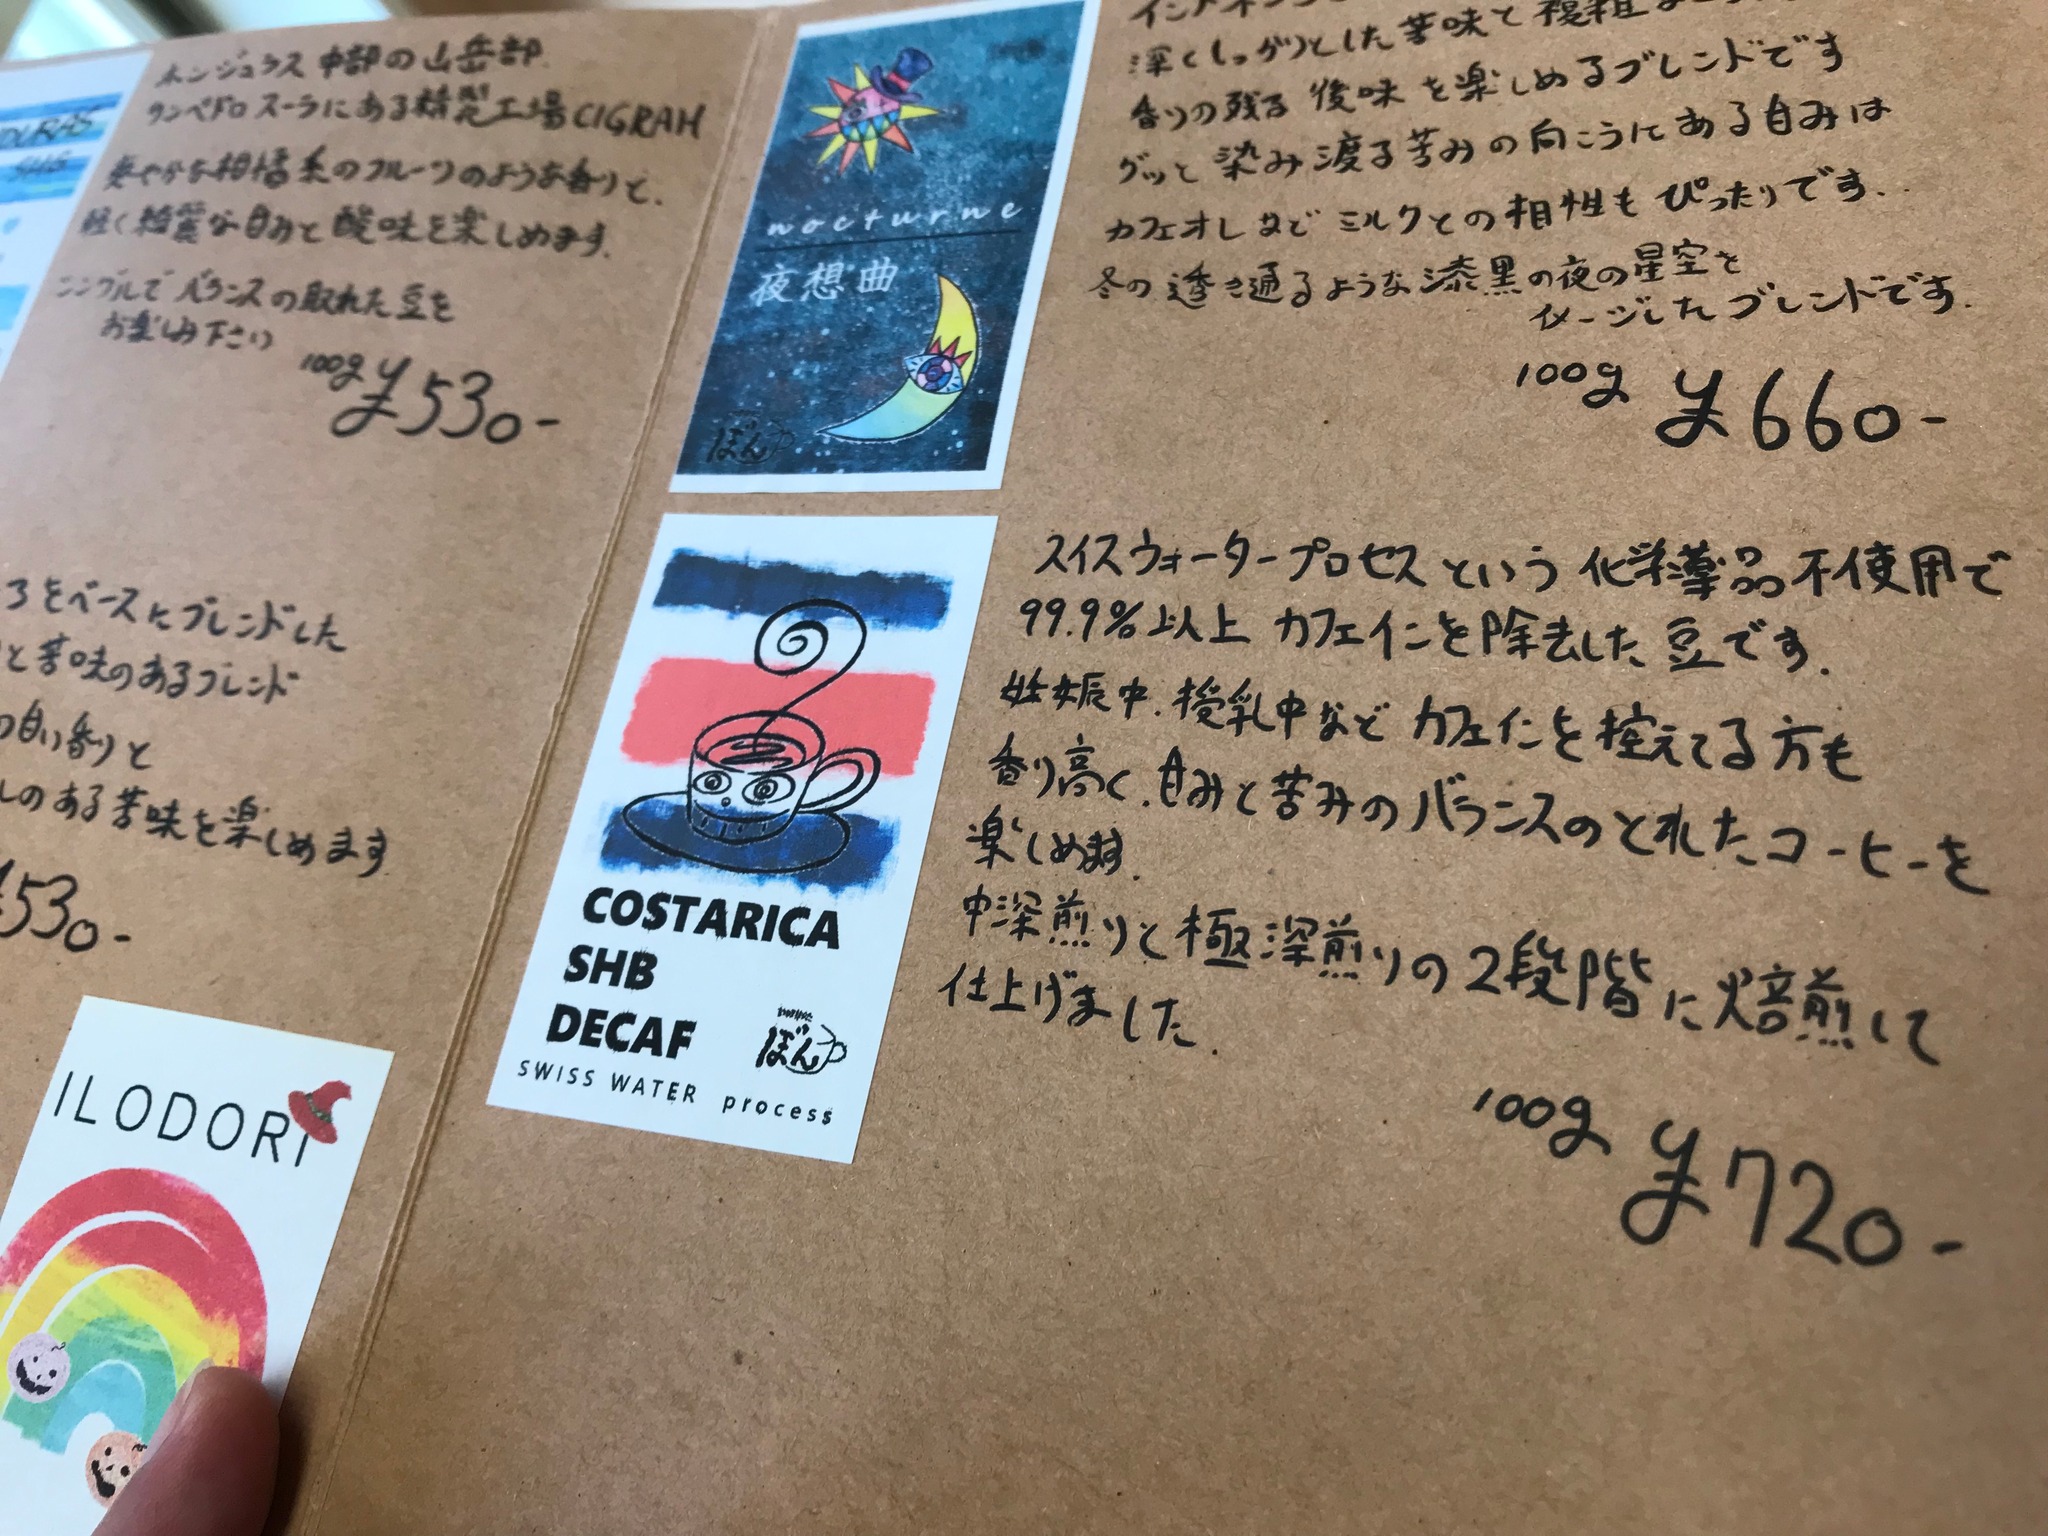 DURAS
SHG
ホンジュラス中部の山岳部.
サンペドロスーラにある精製工場CIGRAH
爽やかな柑橘系のフルーツのような香りと、
軽く綺麗な甘みと酸味を楽しめます.
シンプルでバランスの取れた豆を
お楽しみ下さい
100g ¥530-
ろをベースにブレンドした
と苦味のあるブレンド
の甘い香りと
しのある苦味を楽しめます
¥530-
ILODORI
nocturne
夜想曲
ぼん
深くしっかりとした苦味と複雑
香りの残る後味を楽しめるブレンドです
グッと染み渡る苦みの向こうにある甘みは
カフェオレなどミルクとの相性もぴったりです.
冬の透き通るような漆黒の夜の星空を
イメージしたブレンドです.
100g ¥660-
COSTARICA
SHB
DECAF
ぼん
SWISS WATER process
スイスウォータープロセスという化学薬品不使用で
99.9%以上カフェインを除去した豆です.
妊娠中.授乳中などカフェインを控えてる方も
香り高く.甘みと苦みのバランスのとれたコーヒーを
楽しめます.
中深煎りと極深煎りの2段階に焙煎して
仕上げました.
100g ¥720-